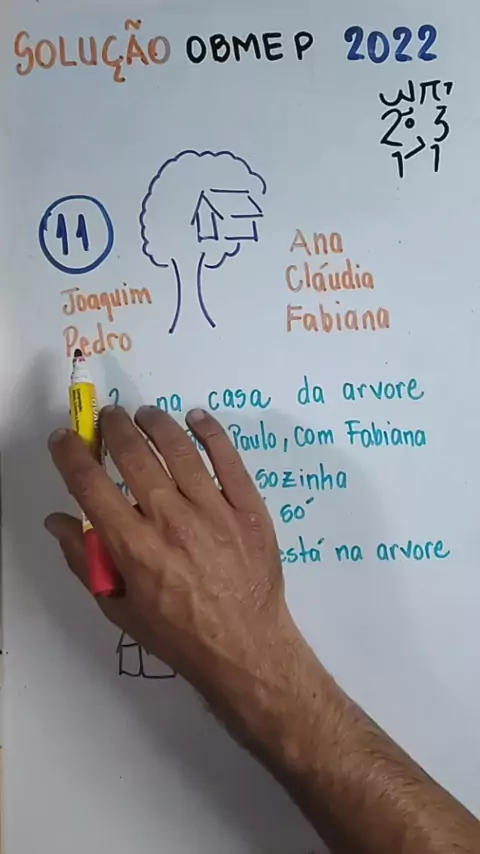 SOLUÇÃO OBMEP 2022
2 3
1 1
11
Joaquim
Pedro
Ana
Cláudia
Fabiana
2 na casa da arvore
Paulo, com Fabiana
sozinha
só
está na arvore